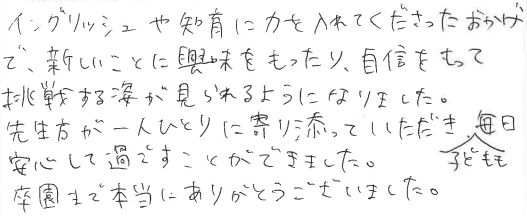 イングリッシュや知育に力を入れてくださったおかげ
で、新しいことに興味をもったり、自信をもって
挑戦する姿が見られるようになりました。
先生方が一人ひとりに寄り添っていただき、毎日
子どもも
安心して過ごすことができました。
卒園まで本当にありがとうございました。